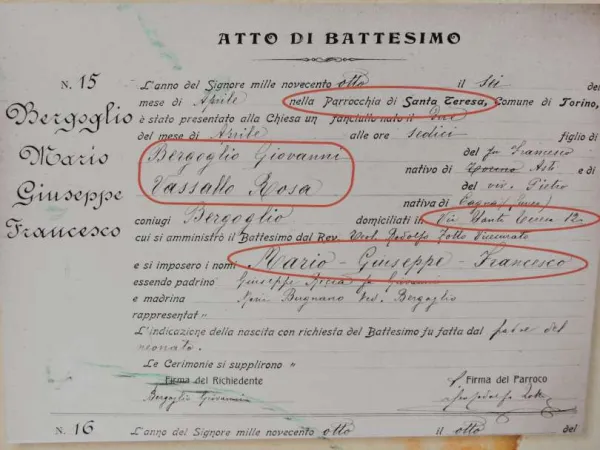 ATTO DI BATTESIMO
N. 15 L'anno del Signore mille novecento otto il sei del
mese di Aprile nella Parrocchia di Santa Teresa, Comune di Torino,
è stato presentato alla Chiesa un fanciullo nato il due
del mese di Aprile alle ore sedici figlio di
Bergoglio Giovanni del fu Francesco
nativo di Torino Asti e di
Vassallo Rosa del viv. Pietro
nativa di
coniugi Bergoglio domiciliati in Via
cui si amministrò il Battesimo dal Rev.
e si imposero i nomi Mario - Giuseppe - Francesco
essendo padrino Giuseppe fu Giovanni
e madrina Maria Bugnano Ved. Bergoglio
rappresentat
L'indicazione della nascita con richiesta del Battesimo fu fatta dal padre del
neonato.
Le Cerimonie si supplirono "
Firma del Richiedente Firma del Parroco
Bergoglio Giovanni
Bergoglio
Mario
Giuseppe
Francesco
N. 16 L'anno del Signore mille novecento otto il otto del